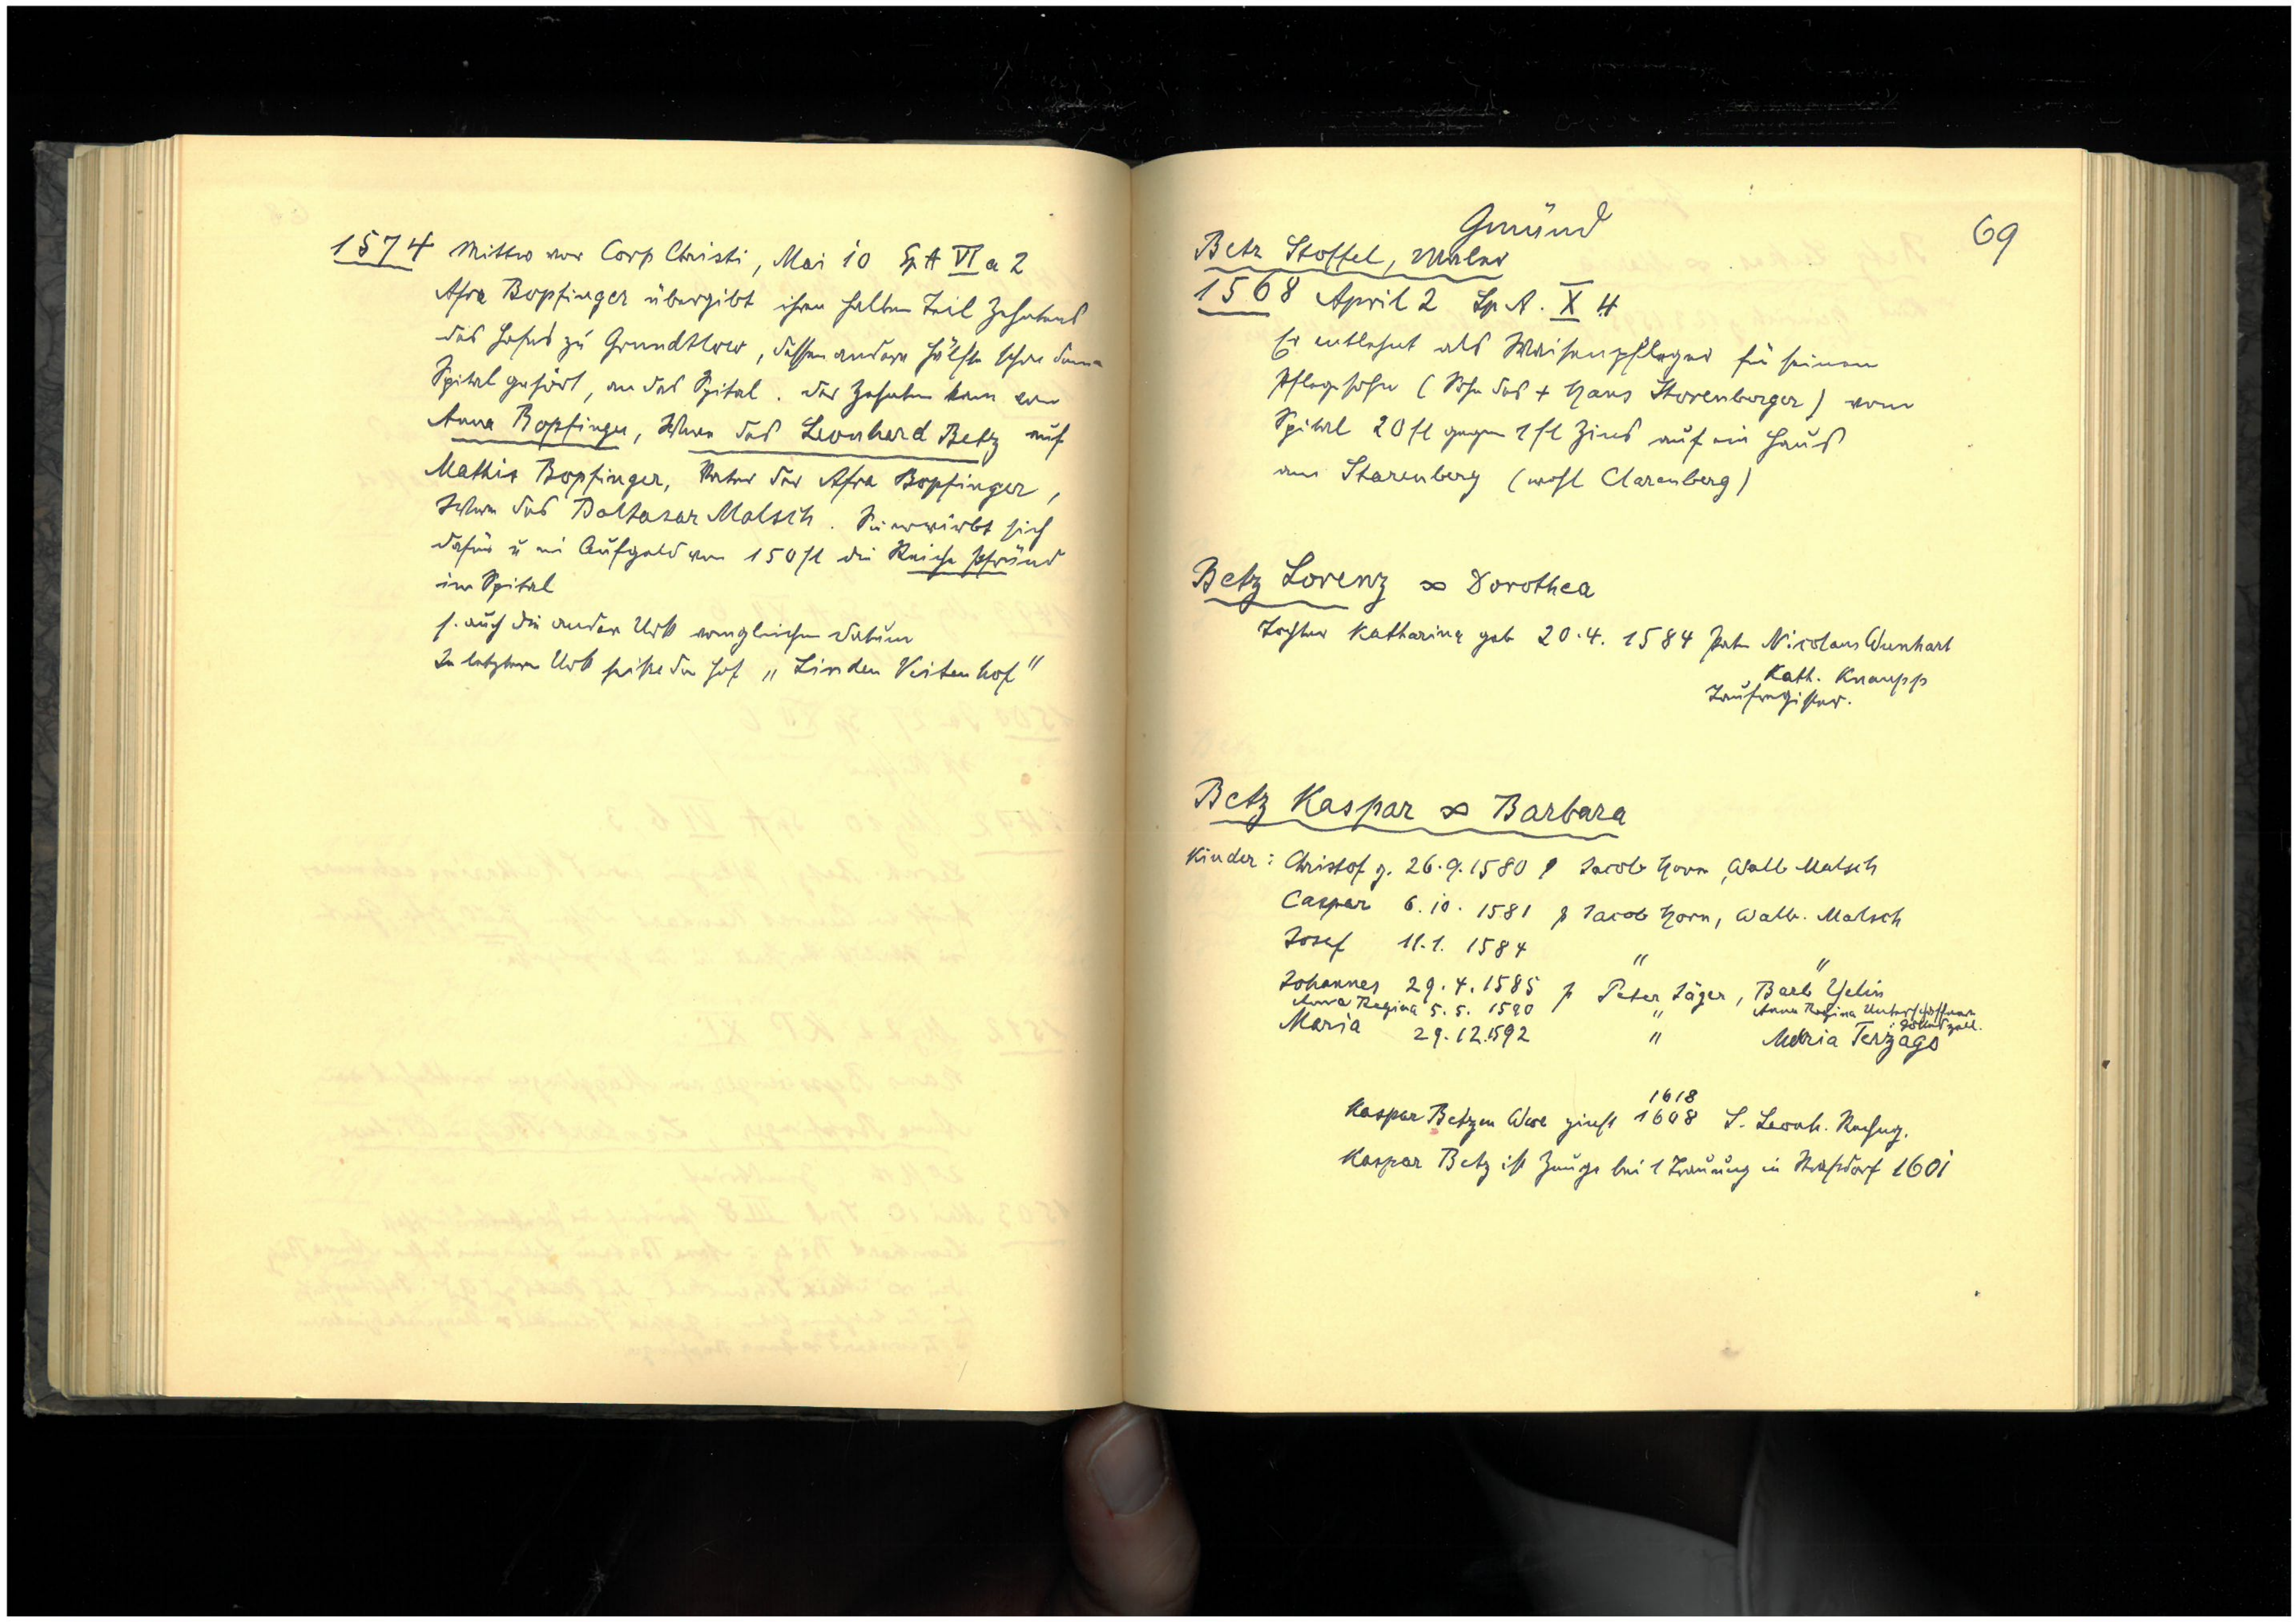 1574 Mittw vor Corp Christi, Mai 10 Sp A VI a 2
Afra Bopfinger übergibt ihren halben Teil Zehntens
des Hofes zu Grundtlow, dessen andere Hälfte schon dem
Spital gehört, an das Spital. Der Zehnten kam von
Anna Bopfinger, Witwe des Leonhard Betz auf
Mathis Bopfinger, Vater der Afra Bopfinger,
Witwe des Baltasar Malsch. Sie erwirbt sich
dafür u ein Aufgeld von 150 fl die Reiche Pfründ
im Spital
s. auch die andere Urk vom gleichen Datum
In letzterer Urk heißt der Hof „Linden Veitenhof"
Gmünd
69
Betz Stoffel, Maler
1568 April 2 Sp A. X 4
Er entlehnt als Waisenpfleger für seinen
Pflegesohn (Sohn des + Hans Storenberger) vom
Spital 20 fl gegen 1 fl Zins auf ein Haus
am Starenberg (wohl Clarenberg)
Betz Lorenz ∞ Dorothea
Tochter Katharina geb 20.4.1584 Paten Nicolaus Wunhart
Kath. Knaupp
Taufregister.
Betz Kaspar ∞ Barbara
Kinder: Christof g. 26.9.1580 p Jacob Horn, Walb Malsch
Caspar 6.10.1581 p Jacob Horn, Walb. Malsch
Josef 11.1.1584 " "
Johannes 29.4.1585 p Peter Jäger, Barb Yelin
Anna Regina 5.5.1590 " Anna Regina
Maria 29.12.1592 " Maria Terzago
1618
Kaspar Betzen Wwe zinst 1608 S. Leonh. Rechng.
Kaspar Betz ist Zeuge bei 1 Trauung in Straßdorf 1601